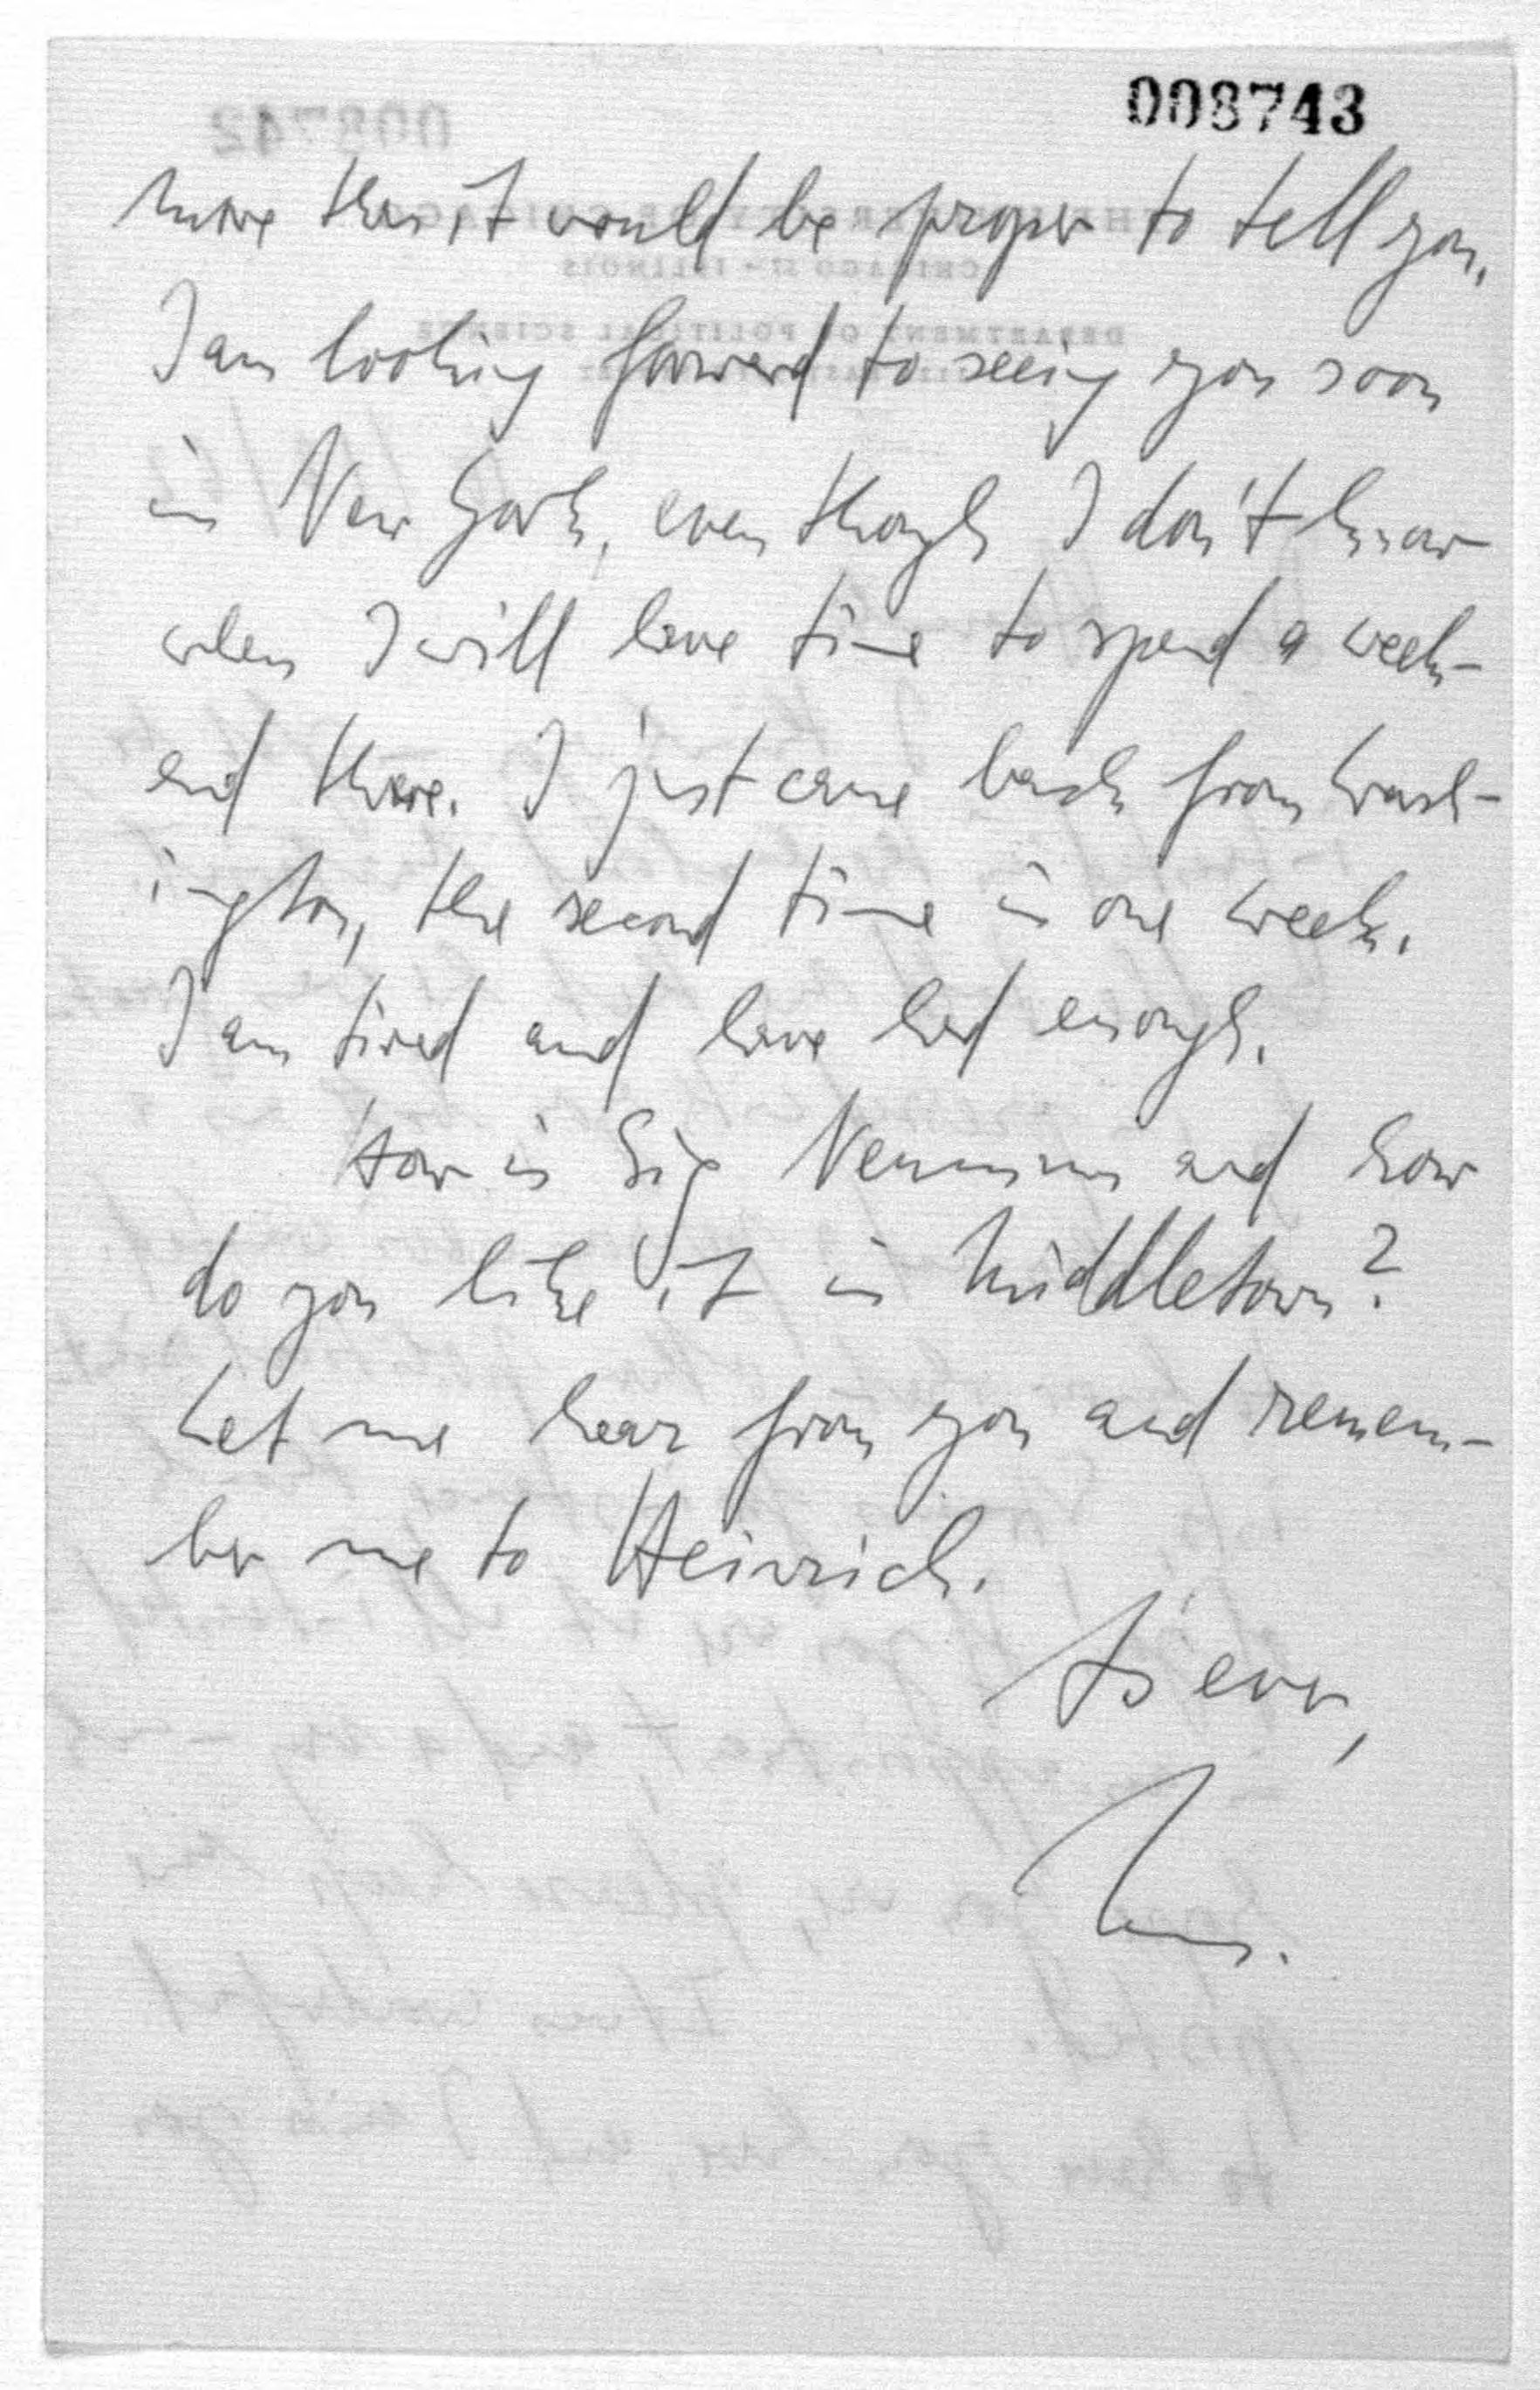 008743
more than it would be proper to tell you.
I am looking forward to seeing you soon
in New York, even though I don't know
when I will have time to spend a week-
end there. I just came back from Wash-
ington, the second time in one week.
I am tired and have had enough.
How is Sig Neumann and how
do you like it in Middletown?
Let me hear from you and remem-
ber me to Heinrich.
As ever,